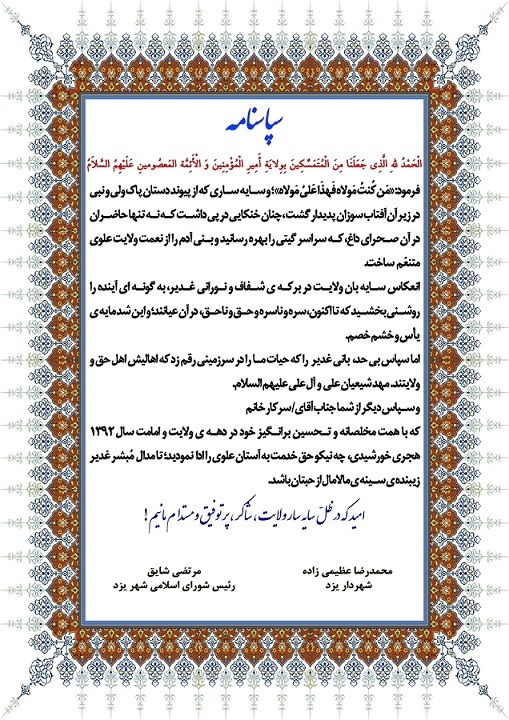 سپاسنامه
الْحَمْدُ للهِ الَّذِی جَعَلَنَا مِنَ الْمُتَمَسِّکِینَ بِوِلَایَةِ أَمِیرِ الْمُؤْمِنِینَ وَ الْأَئِمَّةِ المَعصُومینِ عَلَیْهِمُ السَّلَامُ
فرمود: «مَن کُنتُ مَولاه فَهذا عَلیٌ مَولاه»؛ و سایه ساری که از پیوند دستان پاک ولی و نبی
در زیر آن آفتاب سوزان پدیدار گشت، چنان خنکایی در پی داشت که نه تنها حاضران
در آن صحرای داغ، که سراسر گیتی را بهره رسانید و بنی آدم را از نعمت ولایت علوی
متنعّم ساخت.
انعکاس سایه بان ولایت در برکه ی شفاف و نورانی غدیر، به گونه ای آینده را
روشنی بخشید که تا اکنون، سره و ناسره و حق و ناحق، در آن عیانند؛ و این شد مایه ی
یأس و خشم خصم.
اما سپاس بی حد، بانی غدیر را که حیات ما را در سرزمینی رقم زد که اهالیش اهل حق و
ولایتند، مهد شیعیان علی و آل علی علیهم السلام.
و سپاس دیگر از شما جناب آقای/ سرکار خانم
که با همت مخلصانه و تحسین برانگیز خود در دهه ی ولایت و امامت سال ۱۳۹۲
هجری خورشیدی، چه نیکو حق خدمت به آستان علوی را ادا نمودید؛ تا مدال مُبشر غدیر
زیبنده ی سینه ی مالامال از حبتان باشد.
امید که در ظلّ سایه سار ولایت، شاکر، پر توفیق و مستدام مانیم!
محمدرضا عظیمی زاده
شهردار یزد
مرتضی شایق
رئیس شورای اسلامی شهر یزد